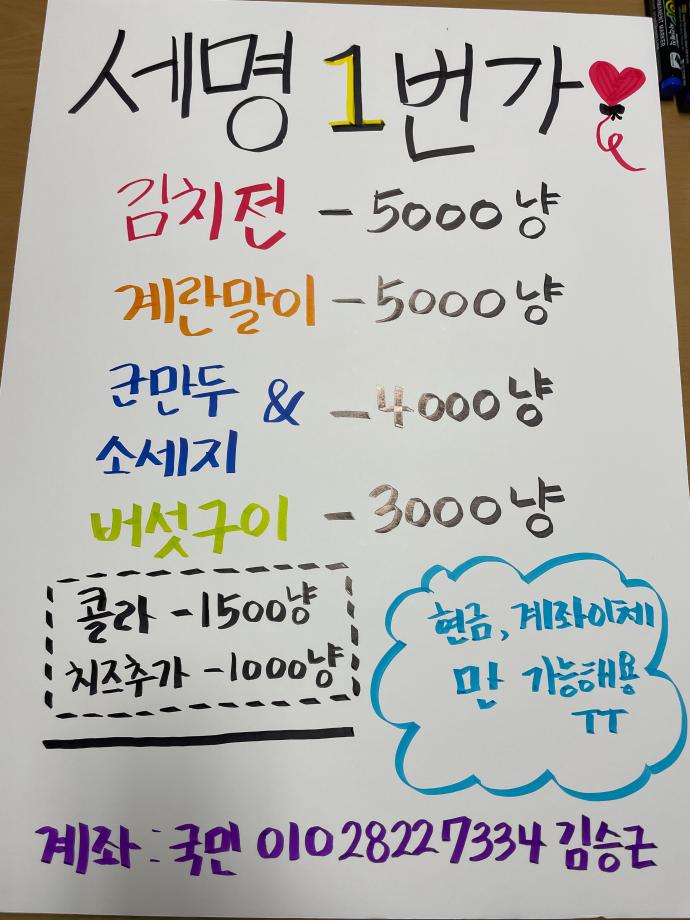 세명 1번가
김치전 - 5000냥
계란말이 - 5000냥
군만두 & 소세지 - 4000냥
버섯구이 - 3000냥
콜라 - 1500냥
치즈추가 - 1000냥
현금, 계좌이체
만 가능해용
ㅜㅜ
계좌 : 국민 01028227334 김승근